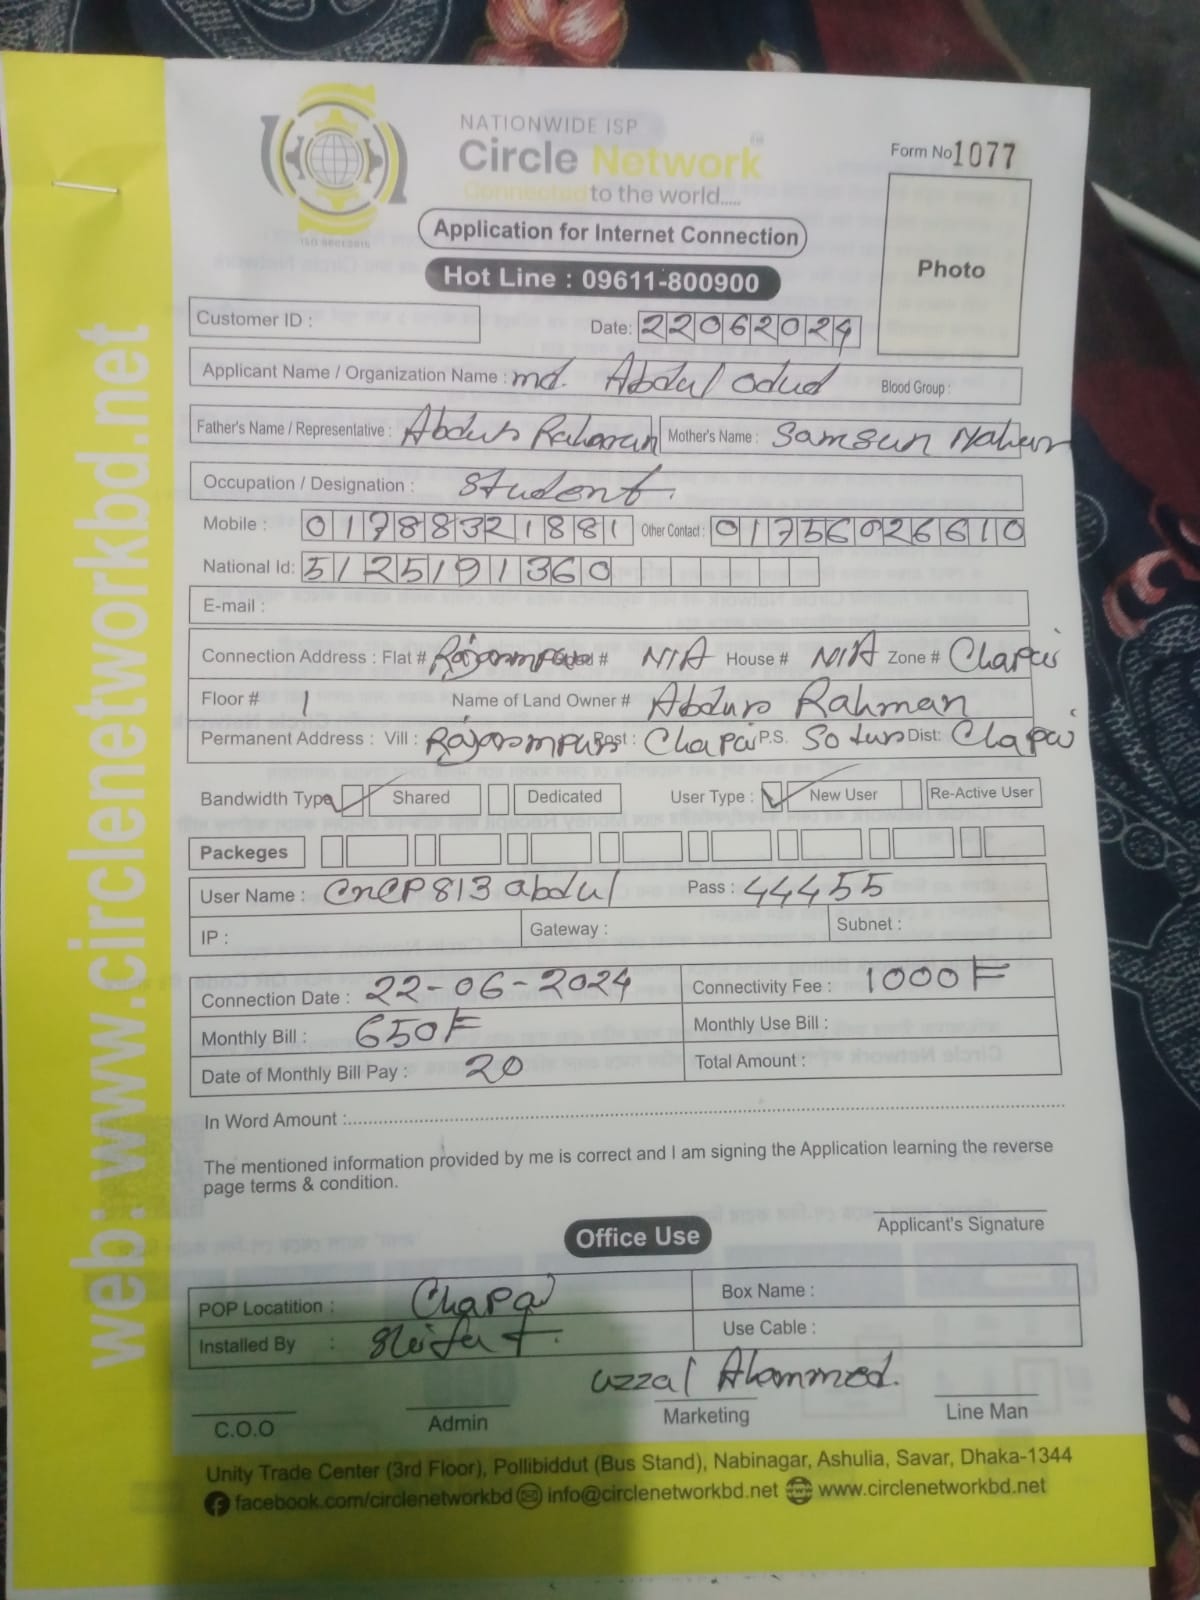 NATIONWIDE ISP
Circle Network
Connected to the world.....
ISO 9001:2015
Form No 1077
Application for Internet Connection
Hot Line : 09611-800900
Photo
Customer ID :
Date: 22062024
Applicant Name / Organization Name : md. Abdul Odud Blood Group :
Father's Name / Representative : Abdur Rahaman Mother's Name : Samsun Nahar
Occupation / Designation : Student.
Mobile : 01788321881 Other Contact : 01756026610
National Id: 5125191360
E-mail :
Connection Address : Flat # Rajarampur # N/A House # N/A Zone # Chapai
Floor # 1 Name of Land Owner # Abdur Rahman
Permanent Address : Vill : Rajarampur Post : Chapai P.S. Sotur Dist: Chapai
Bandwidth Type Shared Dedicated User Type : New User Re-Active User
Packeges
User Name : CnCP813abdul Pass : 44455
IP : Gateway : Subnet :
Connection Date : 22-06-2024 Connectivity Fee : 1000/=
Monthly Bill : 650/= Monthly Use Bill :
Date of Monthly Bill Pay : 20 Total Amount :
In Word Amount :
The mentioned information provided by me is correct and I am signing the Application learning the reverse
page terms & condition.
Applicant's Signature
Office Use
POP Locatition : Chapai Box Name :
Installed By : Use Cable :
uzzal Ahammed.
C.O.O Admin Marketing Line Man
Unity Trade Center (3rd Floor), Pollibiddut (Bus Stand), Nabinagar, Ashulia, Savar, Dhaka-1344
facebook.com/circlenetworkbd info@circlenetworkbd.net www.circlenetworkbd.net
web: www.circlenetworkbd.net